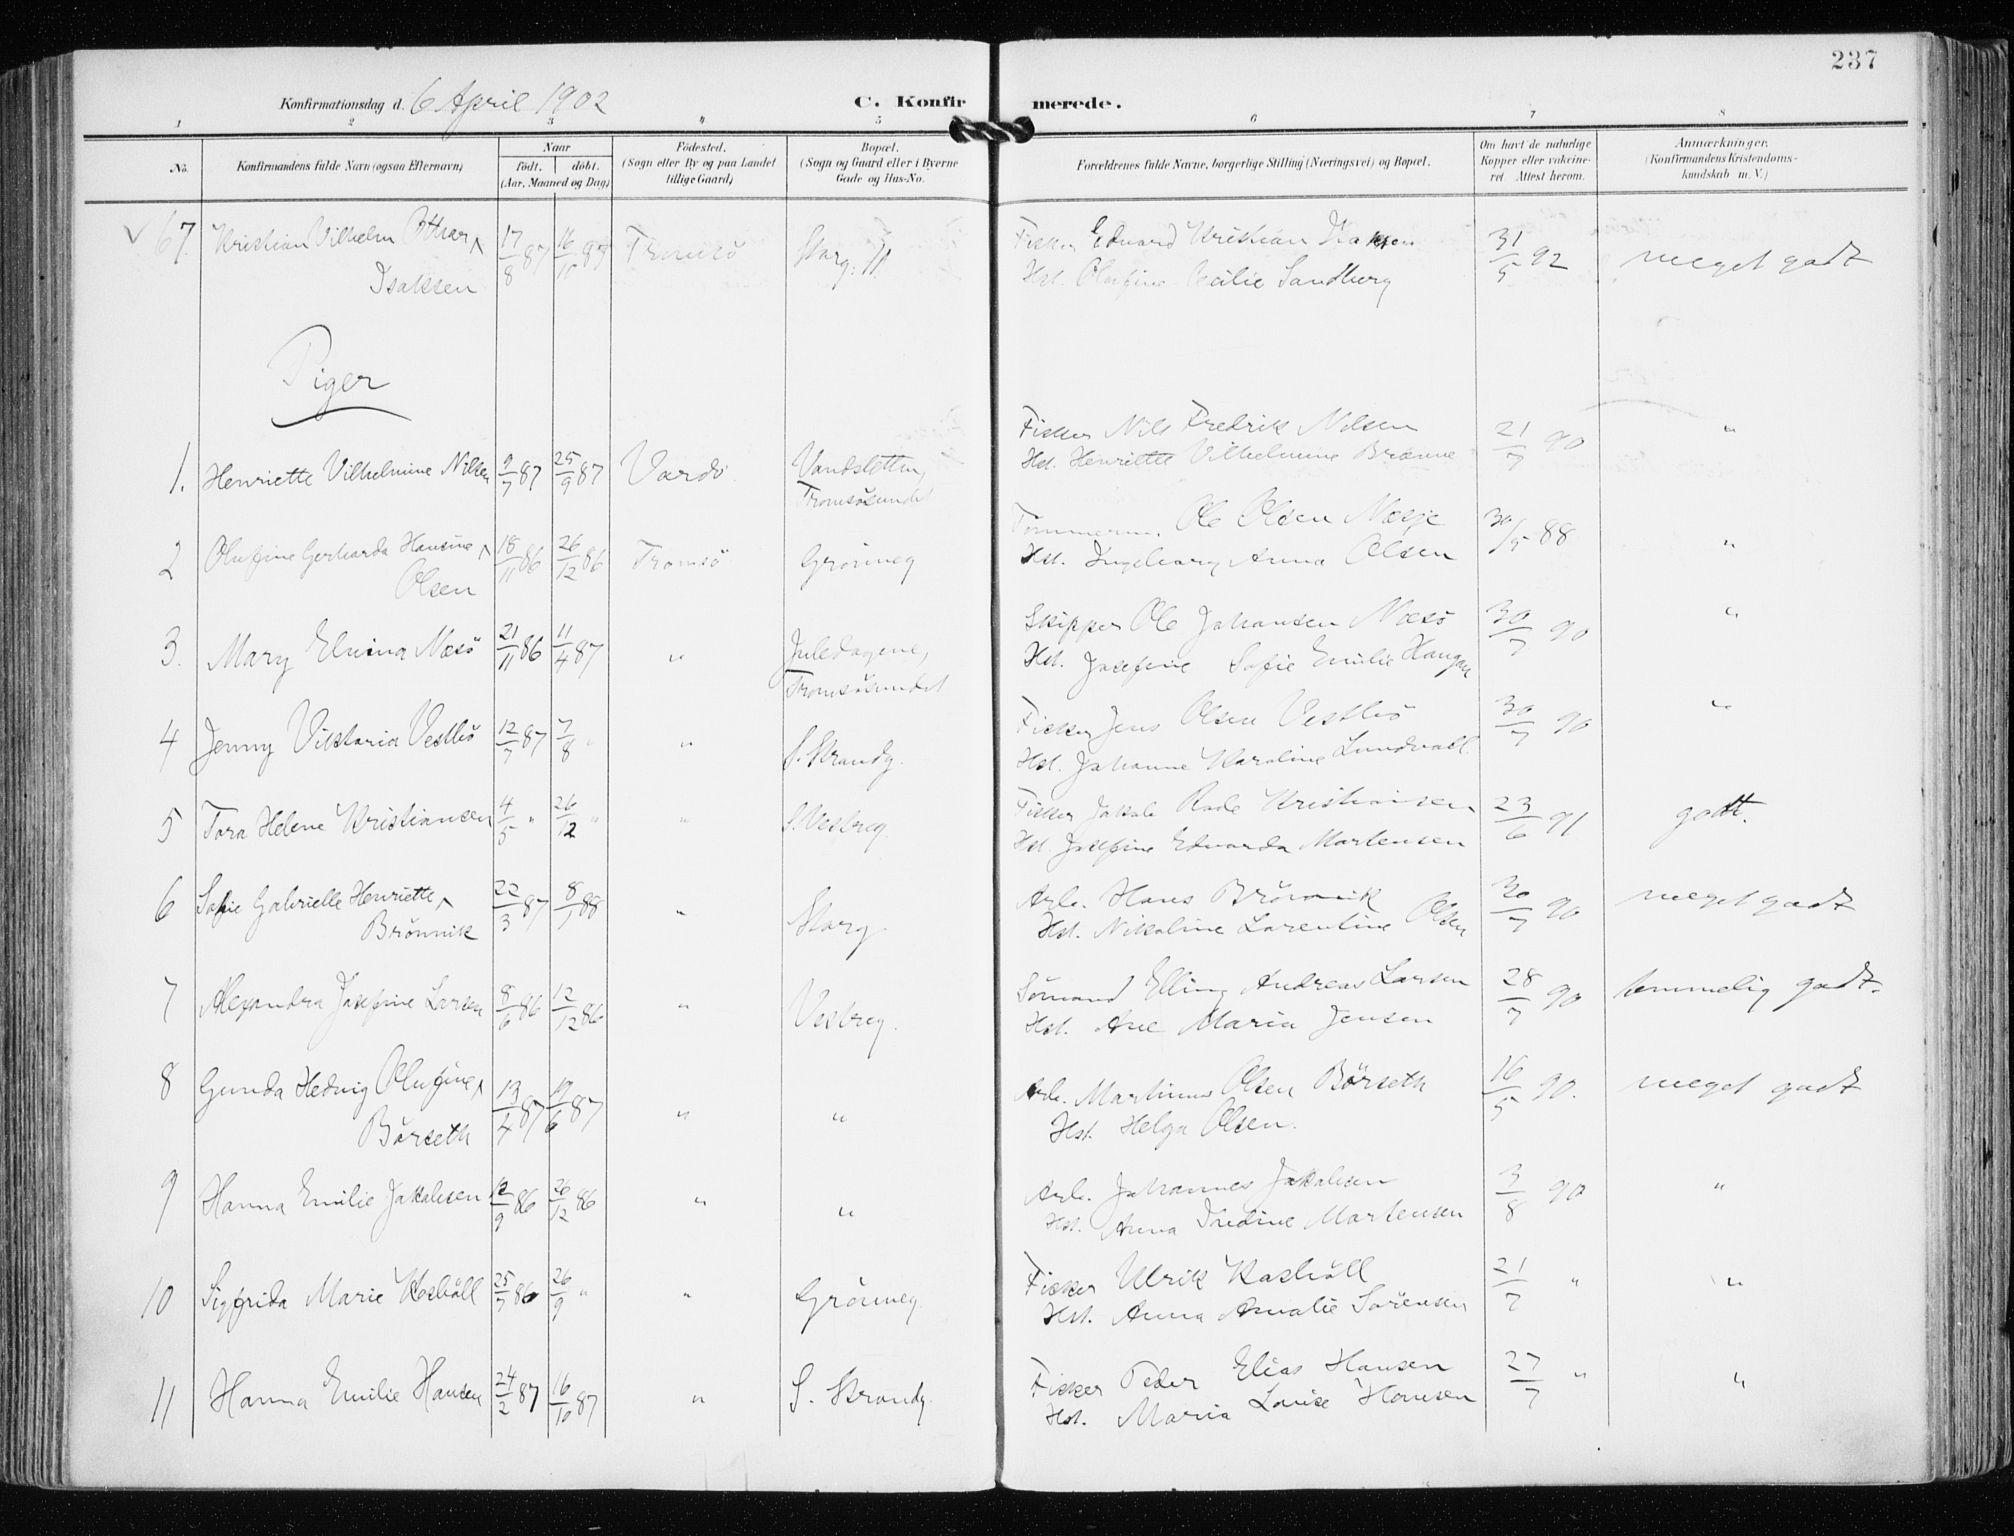 237
Konfirmationsdag d. 6 April 1902 C. Konfirmerede.
1 2 3 4 5 6 7 8
No. Konfirmandens fulde Navn (ogsaa Efternavn) Naar født. døbt. (Aar, Maaned og Dag) Fødested. (Sogn eller By og paa Landet tillige Gaard) Bopæl. (Sogn og Gaard eller i Byerne Gade og Hus-No. Forældrenes fulde Navne, borgerlige Stilling (Næringsvei) og Bopæl. Om havt de naturlige Kopper eller vakcineret. Attest herom. Anmærkninger. (Konfirmandens Kristendomskundskab m. V.)
67. Kristian Vilhelm Ottar 17/8 87 16/10 87 Tromsö Storg. 11 Fisker Edvard Kristian Isaksen 31/5 92 meget godt
Isaksen Hst. Olufine Cecilie Sandberg
Piger
1. Henriette Vilhelmine Nilsen 9/7 87 25/9 87 Vardö Vandsletten, Fisker Nils Fredrik Nilsen 21/7 90 "
Tromsösundet Hst. Henriette Vilhelmine Brænne
2 Olufine Gerharda Hansine 18/11 86 26/12 86 Tromsö Grönneg Tömmerm. Ole Olsen Næsje 30/5 88 "
Olsen Hst. Ingeborg Anna Olsen
3. Mary Elvina Næsö 21/11 86 11/4 87 " Juledagene, Skipper Ole Johansen Næsö 30/7 90 "
Tromsösundet Hst. Josefine Sofie Emilie Haugan
4 Jenny Viktoria Vestbö 12/7 87 7/8 " " S. Strandg. Fisker Jens Olsen Vestbö 30/7 90 "
Hst. Johanne Karoline Lundvall
5 Tora Helene Kristiansen 4/5 " 26/12 " " S. Vestreg. Fisker Jakob Rode Kristiansen 23/6 91 godt.
Hst. Josefine Edvarda Martensen
6 Sofie Gabrielle Henriette 22/3 87 8/1 88 " Storg. Arb. Hans Brönnik 30/7 90 meget godt
Brönnik Hst. Nikoline Larentine Olsen
7 Alexandra Josefine Larsen 8/6 86 12/12 86 " Vestreg. Sömand Elling Andreas Larsen 28/7 90 temmelig godt.
Hst. Ane Maria Jensen
8 Gunda Hedvig Olufine 13/4 87 19/6 87 " " Arb. Martinus Olsen Börseth 16/5 90. meget godt
Börseth Hst. Helga Olsen.
9 Hanna Emilie Jakobsen 12/9 86 26/12 86 " " Arb. Johannes Jakobsen 3/8 90 "
Hst. Anna Indine Martensen
10 Sigfrida Marie Kasböll 25/7 86 26/9 " " Grönneg. Fisker Ulrik Kasböll 21/7 " "
Hst. Anna Amalie Sörensen
11 Hanna Emilie Hansen 24/2 87 16/10 87 " S. Strandg. Fisker Peder Elias Hansen 27/7 " "
Hst. Maria Lovise Hansen